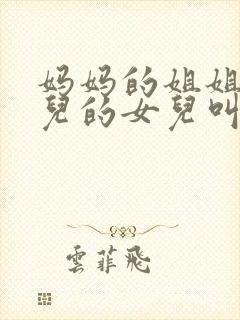 妈妈的姐姐
兒的女兒叫
雲菲飛